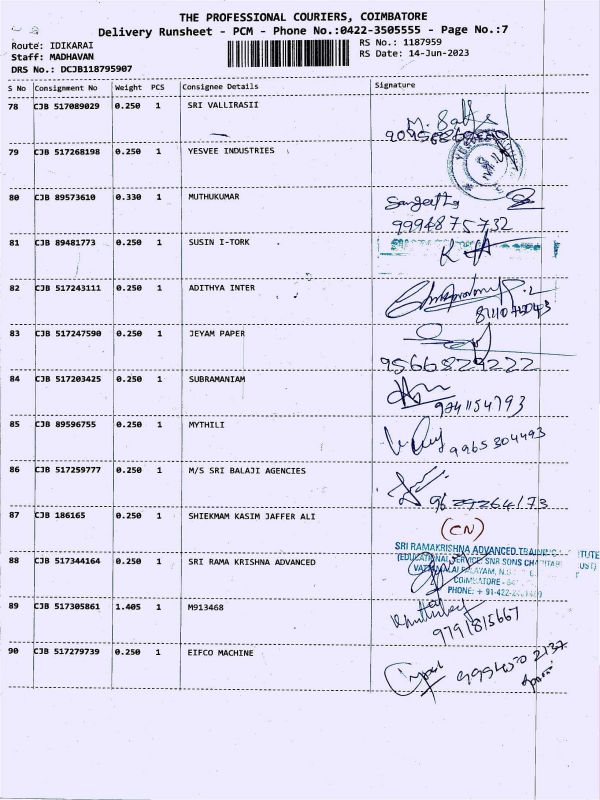 THE PROFESSIONAL COURIERS, COIMBATORE
Delivery Runsheet - PCM - Phone No.:0422-3505555 - Page No.:7
Route: IDIKARAI
RS No.: 1187959
Staff: MADHAVAN
RS Date: 14-Jun-2023
DRS No.: DCJB118795907
S No Consignment No Weight PCS Consignee Details Signature
78 CJB 517089029 0.250 1 SRI VALLIRASII
79 CJB 517268198 0.250 1 YESVEE INDUSTRIES
80 CJB 89573610 0.330 1 MUTHUKUMAR Sangeetha
9994875732
81 CJB 89481773 0.250 1 SUSIN I-TORK
82 CJB 517243111 0.250 1 ADITHYA INTER
83 CJB 517247590 0.250 1 JEYAM PAPER
9566829222
84 CJB 517203425 0.250 1 SUBRAMANIAM
85 CJB 89596755 0.250 1 MYTHILI
9965304493
86 CJB 517259777 0.250 1 M/S SRI BALAJI AGENCIES
87 CJB 186165 0.250 1 SHIEKMAM KASIM JAFFER ALI (CN)
SRI RAMAKRISHNA ADVANCED TRAINING
88 CJB 517344164 0.250 1 SRI RAMA KRISHNA ADVANCED
(EDUCATIONAL SERVICE: SNR SONS CHARITABLE
COIMBATORE
PHONE: + 91-422-
89 CJB 517305861 1.405 1 M913468
9791815667
90 CJB 517279739 0.250 1 EIFCO MACHINE